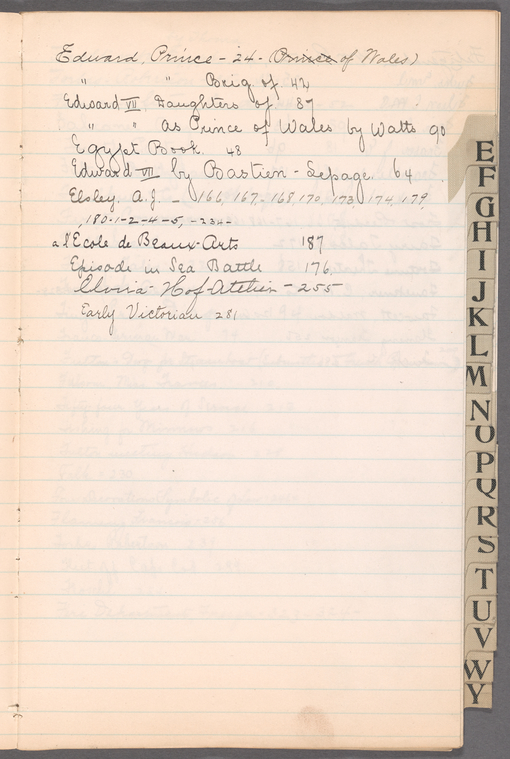 Edward, Prince - 24 - (Prince of Wales)
" " Brig of 42
Edward VII Daughters of 87
" " as Prince of Wales by Watts 90
Egypt Book. 48
Edward VII by Bastien-Lepage. 64
Elsley, A.J. - 166, 167-168, 170, 173, 174, 179,
, 180-1-2-4-5, -234-
a l'Ecole de Beaux-Arts 187
Episode in Sea Battle 176.
Elvira-Hof-Atelier - 255
Early Victorian 281
E
F
G
H
I
J
K
L
M
N
O
P
Q
R
S
T
U
V
W
Y